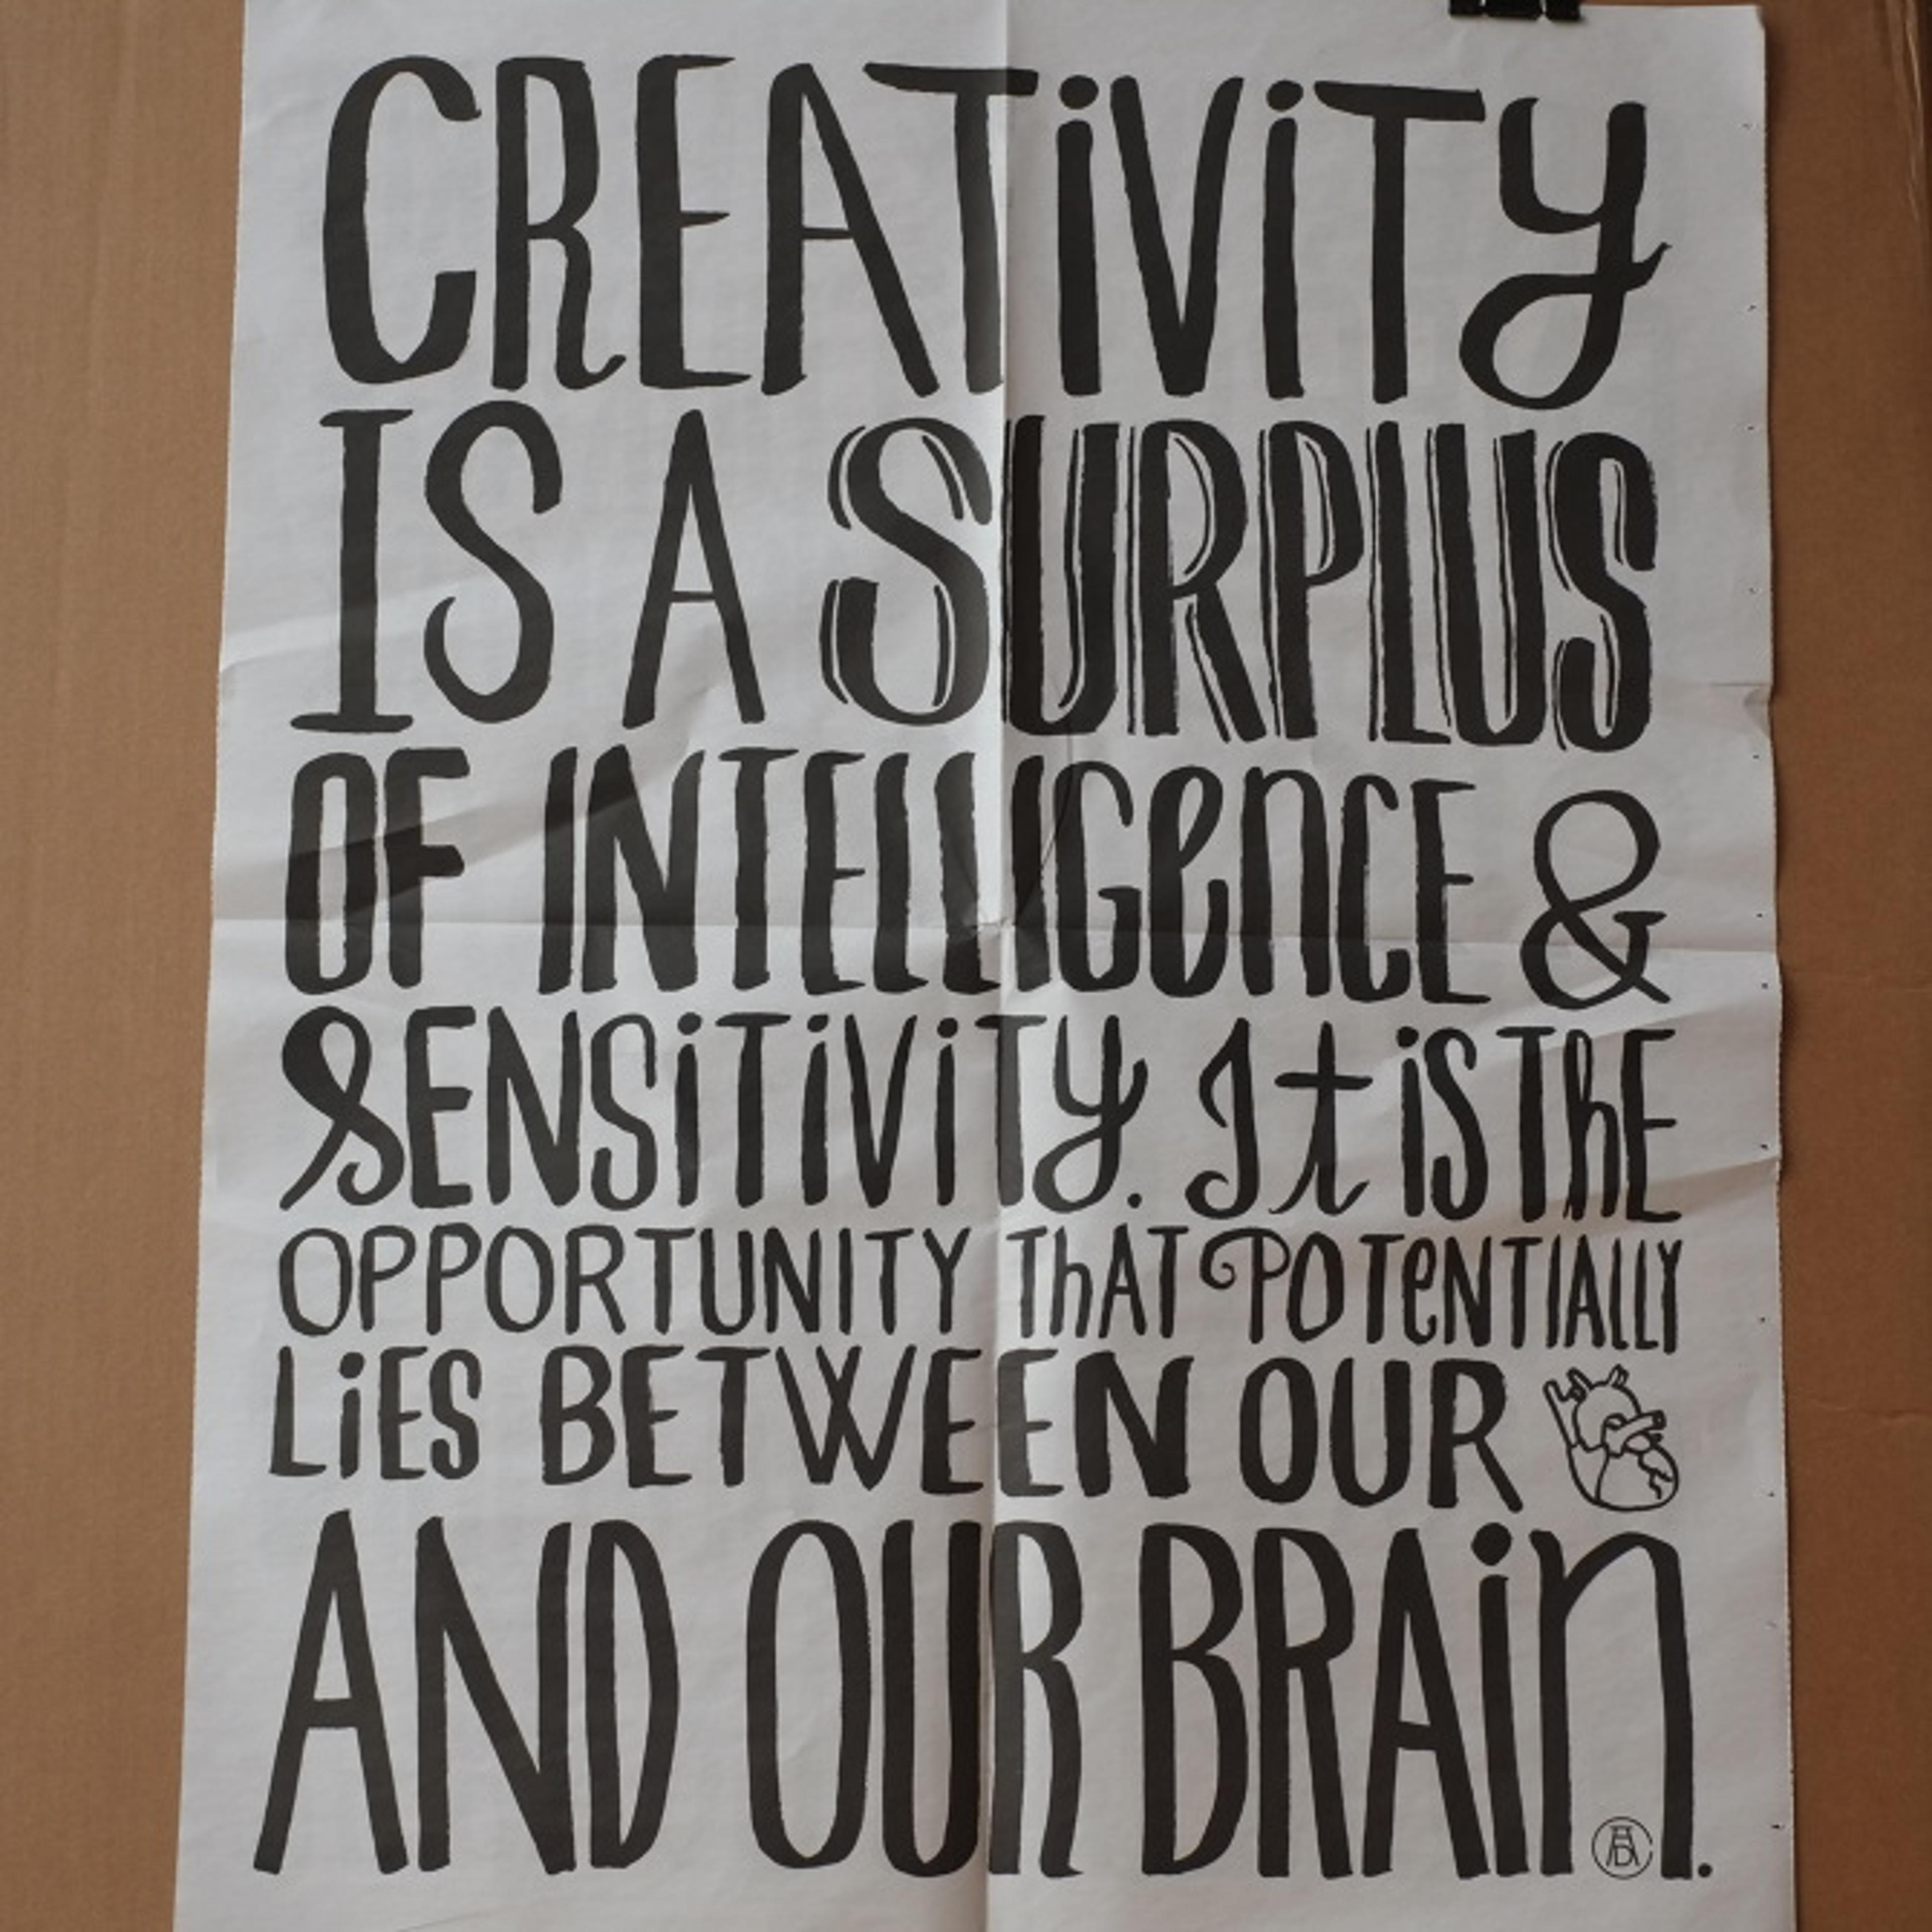 CREATiViTy
IS A SURPLUS
OF INTELLIGenCE &
SENSiTiViTy. It iS ThE
OPPORTUNITY ThAT POTeNTIALLY
LiES BETWEEN OUR
AND OUR BRAin.